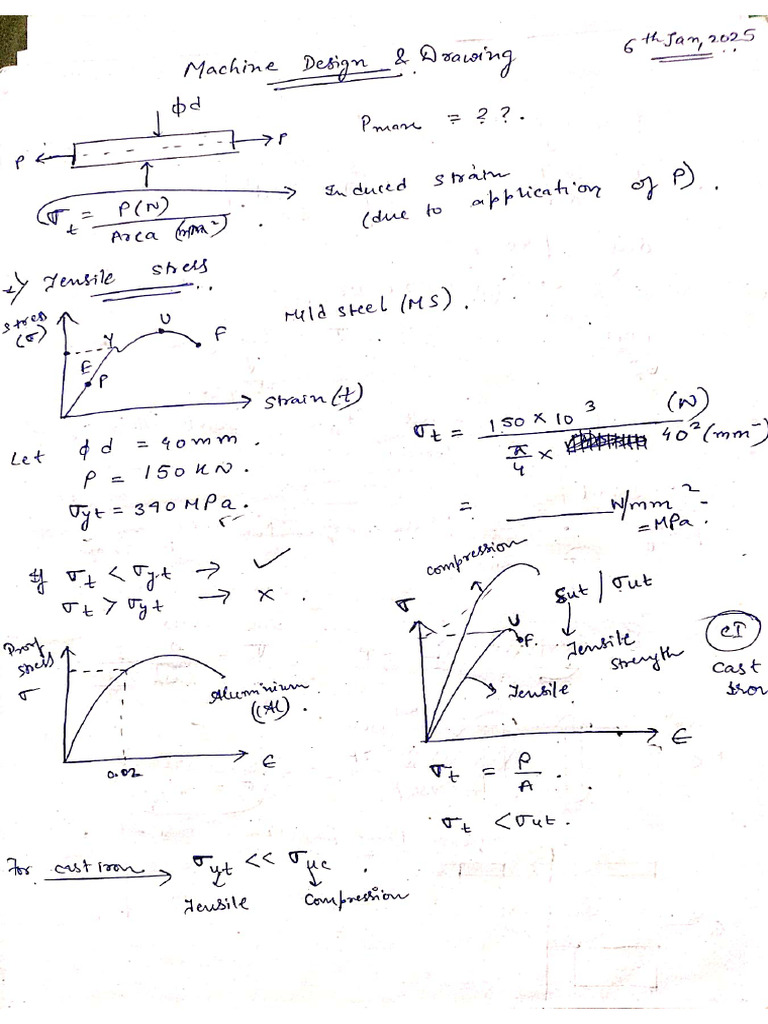 6th Jan, 2025
Machine Design & Drawing
ϕd
P
P
Pmax = ? ?.
σt = P(N) / Area (mm²).
Induced strain
(due to application of P).
Tensile stress
Stress
(σ)
Y
U
F
E
P
Strain (t)
Mild steel (MS).
Let ϕd = 40mm.
P = 150 KN.
σyt = 390 MPa.
σt = 150 × 10³ (N) / π/4 × 40² (mm²)
= ______ N/mm²
= MPa.
If σt < σyt → ✓
σt > σyt → ×.
Proof
stress
σ
Aluminium
(Al).
0.02
ϵ
compression
σ
U
F.
Sut / σut
Tensile
strength
Tensile
CI
Cast
Iron
ϵ
σt = P / A.
σt < σut.
For cast iron → σut << σuc.
Tensile
Compression